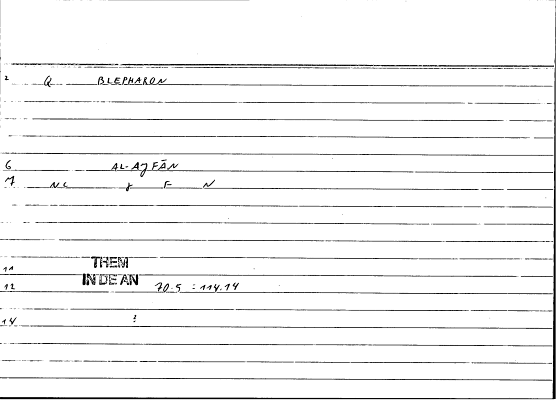 2 Q BLEPHARON
6 AL-AJFĀN
7 NC J F N
11 THEM
12 IN DE AN 70.5 : 114.14
14 :